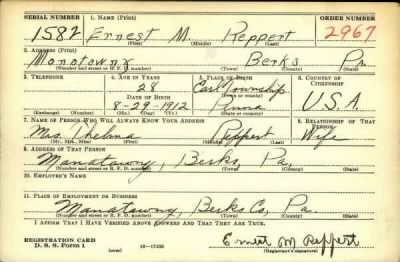 SERIAL NUMBER 1. NAME (Print) ORDER NUMBER
1582 Ernest M. Reppert 2967
(First) (Middle) (Last)
2. ADDRESS (Print)
Monotowny Berks Pa.
(Number and street or R. F. D. number) (Town) (County) (State)
3. TELEPHONE 4. AGE IN YEARS 5. PLACE OF BIRTH 6. COUNTRY OF CITIZENSHIP
28 Earl Township
DATE OF BIRTH (Town or county)
8-29-1912 Penna. U.S.A.
(Exchange) (Number) (Mo.) (Day) (Yr.) (State or country)
7. NAME OF PERSON WHO WILL ALWAYS KNOW YOUR ADDRESS 8. RELATIONSHIP OF THAT PERSON
Mrs. Thelma Reppert Wife
(Mr., Mrs., Miss) (First) (Middle) (Last)
9. ADDRESS OF THAT PERSON
Manatawny, Berks, Pa.
(Number and street or R. F. D. number) (Town) (County) (State)
10. EMPLOYER'S NAME
11. PLACE OF EMPLOYMENT OR BUSINESS
Manatawny, Berks Co, Pa.
(Number and street or R. F. D. number) (Town) (County) (State)
I AFFIRM THAT I HAVE VERIFIED ABOVE ANSWERS AND THAT THEY ARE TRUE.
REGISTRATION CARD
D. S. S. Form 1 (over) 16-17105 Ernest M Reppert
(Registrant's signature)